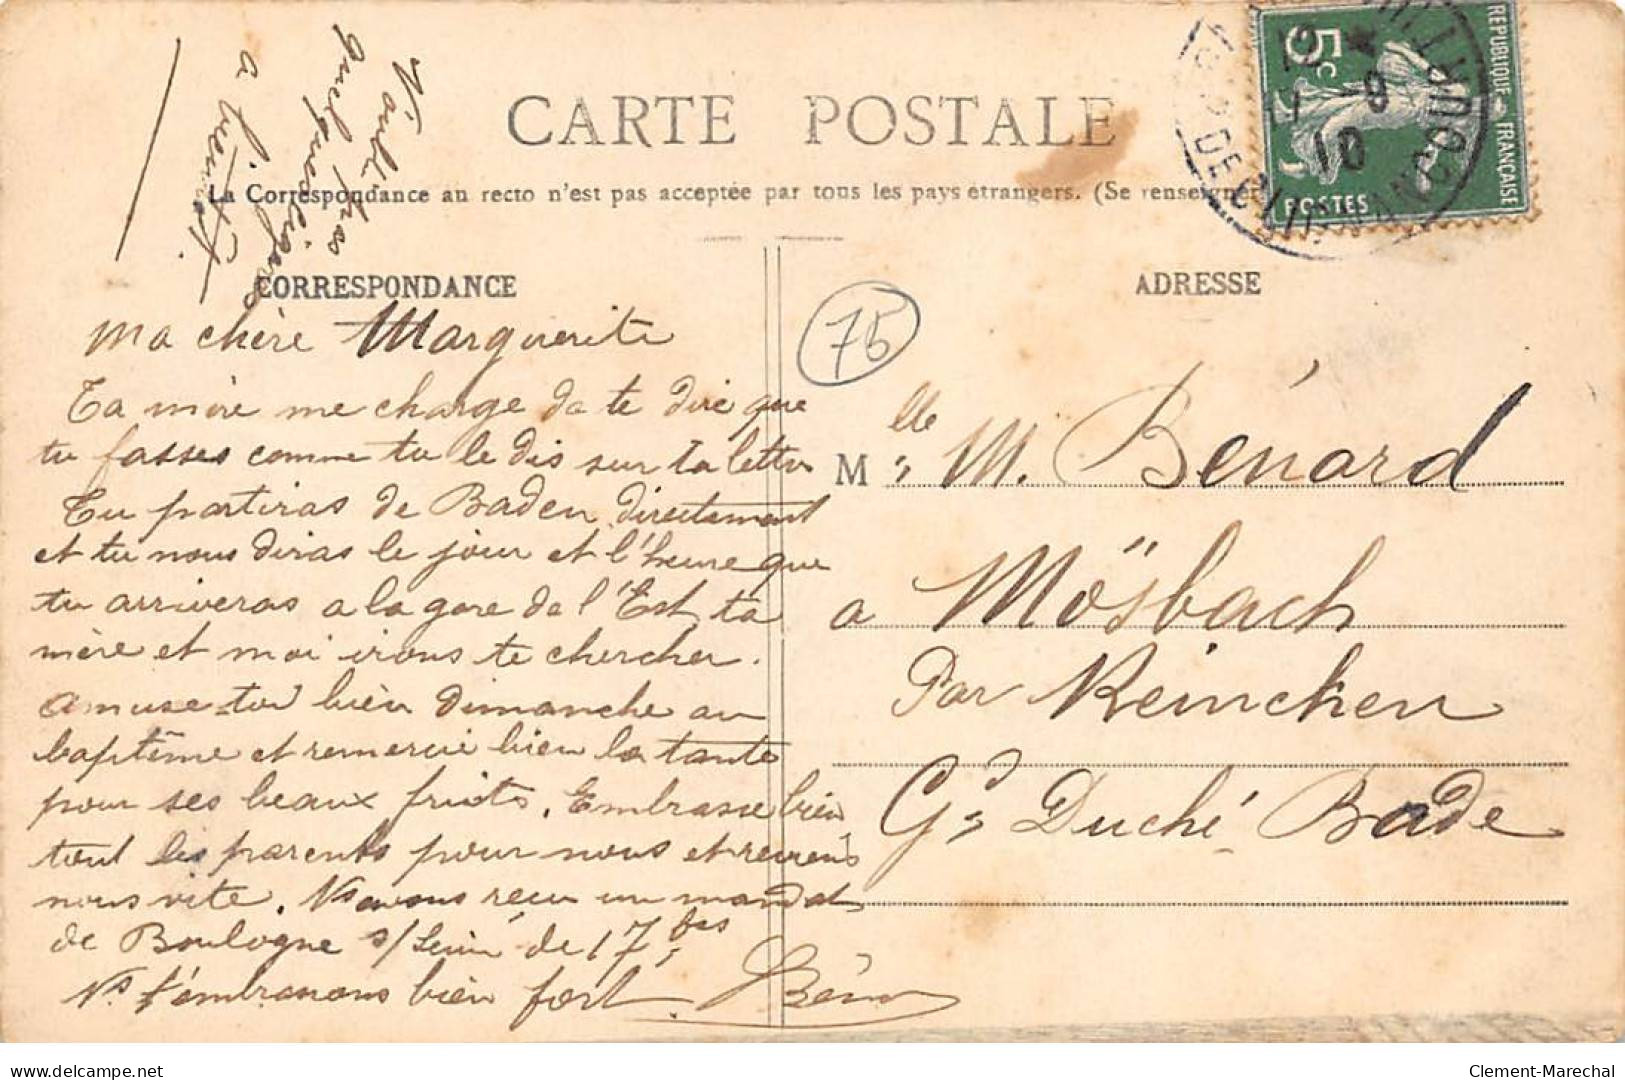 CARTE POSTALE
La Correspondance au recto n'est pas acceptée par tous les pays étrangers. (Se renseigner
CORRESPONDANCE
N'oublie pas
quelques
a bientôt.
Ma chère Marguerite
Ta mère me charge de te dire que
tu fasses comme tu le dis sur ta lettre
Tu partiras de Baden directement
et tu nous diras le jour et l'heure que
tu arriveras a la gare de l'Est, ta
mère et moi irons te chercher.
Amuse-toi bien dimanche au
baptême et remercie bien la tante
pour ses beaux fruits. Embrasse bien
tout les parents pour nous et reviens
nous vite. Ns avons reçu un mandat
de Boulogne s/ Seine de 17 frs
Ns t'embrassons bien fort.
75
ADRESSE
Mlle M. Bénard
a Mösbach
Par Reinchen
Gd Duché Bade
REPUBLIQUE FRANÇAISE
5c
POSTES
10
Clement-Marechal